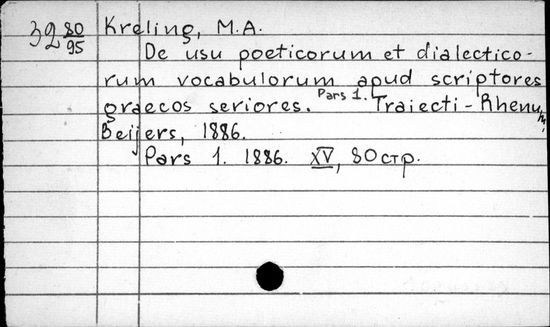 32 80/95 Kreling, M.A.
De usu poeticorum et dialectico-
rum vocabulorum apud scriptores
graecos seriores. Pars 1. Traiecti-Rhenum,
Beijers, 1886.
Pars 1. 1886. XV, 80 стр.